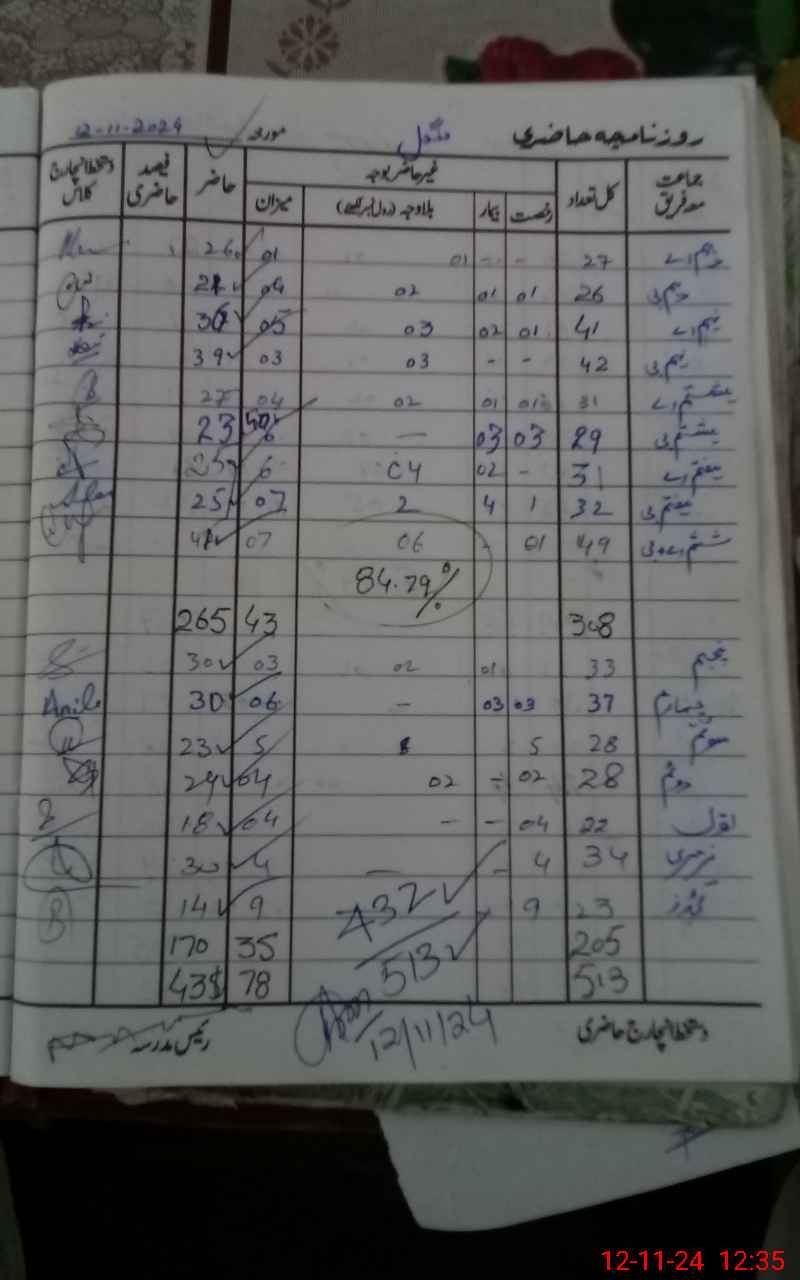 روزنامچہ حاضری منگل مورخہ 12-11-2024
جماعت معہ فریق کل تعداد غیر حاضر بوجہ حاضر فیصد حاضری دستخط انچارج کلاس
رخصت بیمار بلاوجہ میزان
دہم اے 27 - - 01 01 26
دہم بی 26 01 01 02 04
نہم اے 41 01 02 03 05
نہم بی 42 - - 03 03 39
ہشتم اے 31 01 02 04 27
ہشتم بی 29 03 03 — 6 23
ہفتم اے 31 - 02 04 6 25
ہفتم بی 32 1 4 2 07 25
49 01 - 06 07
84.79%
308 43 265
پنجم 33 01 02 03 30
چہارم 37 03 03 - 06 30 Anila
سوم 28 5 5 23
دوم 28 02 02 04 24
اول 22 04 - - 04 18
نرسری 34 4 - — 4 30
23 9 9 14
432
205 35 170
513
513 78
12/11/24
دستخط انچارج حاضری رئیس مدرسہ
12-11-24 12:35